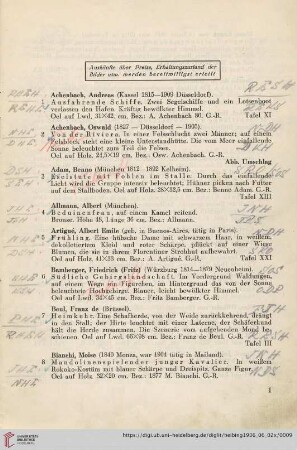 Auskünfte über Preise, Erhaltungszustand der
Bilder usw. werden bereitwilligst erteilt
Achenbach, Andreas (Kassel 1815—1909 Düsseldorf).
1 Ausfahrende Schiffe. Zwei Segelschiffe und ein Lotsenboot
verlassen den Hafen. Kräftig bewölkter Himmel.
Oel auf Lwd. 31×42 cm. Bez.: A. Achenbach 80. G.-R. Tafel XI
Achenbach, Oswald (1827 — Düsseldorf — 1905).
2 Von der Riviera. In einer Felsenbucht zwei Männer; auf einem
Felsblock steht eine kleine Unterstandshütte. Die vom Meer einfallende
Sonne beleuchtet zum Teil die Felsen.
Oel auf Holz. 24,5×19 cm. Bez.: Osw. Achenbach. G.-R.
Abb. Umschlag
Adam, Benno (München 1812—1892 Kelheim).
3 Reitstute mit Fohlen im Stalle. Durch das einfallende
Licht wird die Gruppe intensiv beleuchtet; Hühner picken nach Futter
auf dem Stallboden. Oel auf Holz. 28×32,5 cm. Bez.: Benno Adam. G.-R.
Tafel XIII
Allmann, Albert (München).
4 Beduinenfrau, auf einem Kamel reitend.
Bronze. Höhe 48, Länge 36 cm. Bez.: Allmann.
Artigue, Albert Emile (geb. in Buenos-Aires, tätig in Paris).
5 Frühling. Eine hübsche Dame mit schwarzem Haar, in weißem,
dekolletiertem Kleid und roter Schärpe, pflückt auf einer Wiese
Blumen, die sie in ihrem Florentiner Strohhut aufbewahrt.
Oel auf Lwd. 41×33 cm. Bez.: A. E. Artigue. G.-R. Tafel XXI
Bamberger, Friedrich (Fritz) (Würzburg 1814—1873 Neuenhain).
6 Südliche Gebirgslandschaft. Im Vordergrund Waldungen,
auf einem Wege ein Figürchen, im Hintergrund das von der Sonne
beleuchtete Hochgebirge. Blauer, leicht bewölkter Himmel.
Oel auf Lwd. 34×45 cm. Bez.: Fritz Bamberger. G.-R.
Beul, Franz de (Brüssel).
7 Heimkehr. Eine Schafherde, von der Weide zurückkehrend, drängt
in den Stall; der Hirte leuchtet mit einer Laterne, der Schäferhund
hält die Herde zusammen. Die Szenerie vom aufgehenden Mond be-
schienen. Oel auf Lwd. 65×95 cm. Bez.: Franz de Beul. G.-R.
Tafel III
Bianchi, Moïse (1840 Monza, war 1904 tätig in Mailand).
8 Mandolinenspielender junger Kavalier. In weißem
Rokoko-Kostüm mit blauer Schärpe und Dreispitz. Ganze Figur.
Oel auf Holz. 32×20 cm. Bez.: 1877 M. Bianchi. G.-R.
1